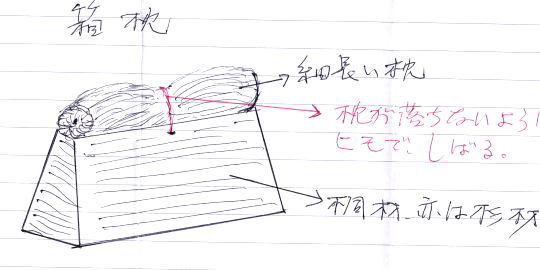 箱枕
細長い枕
枕が落ちないように
ヒモで、しばる。
桐材、亦は杉材